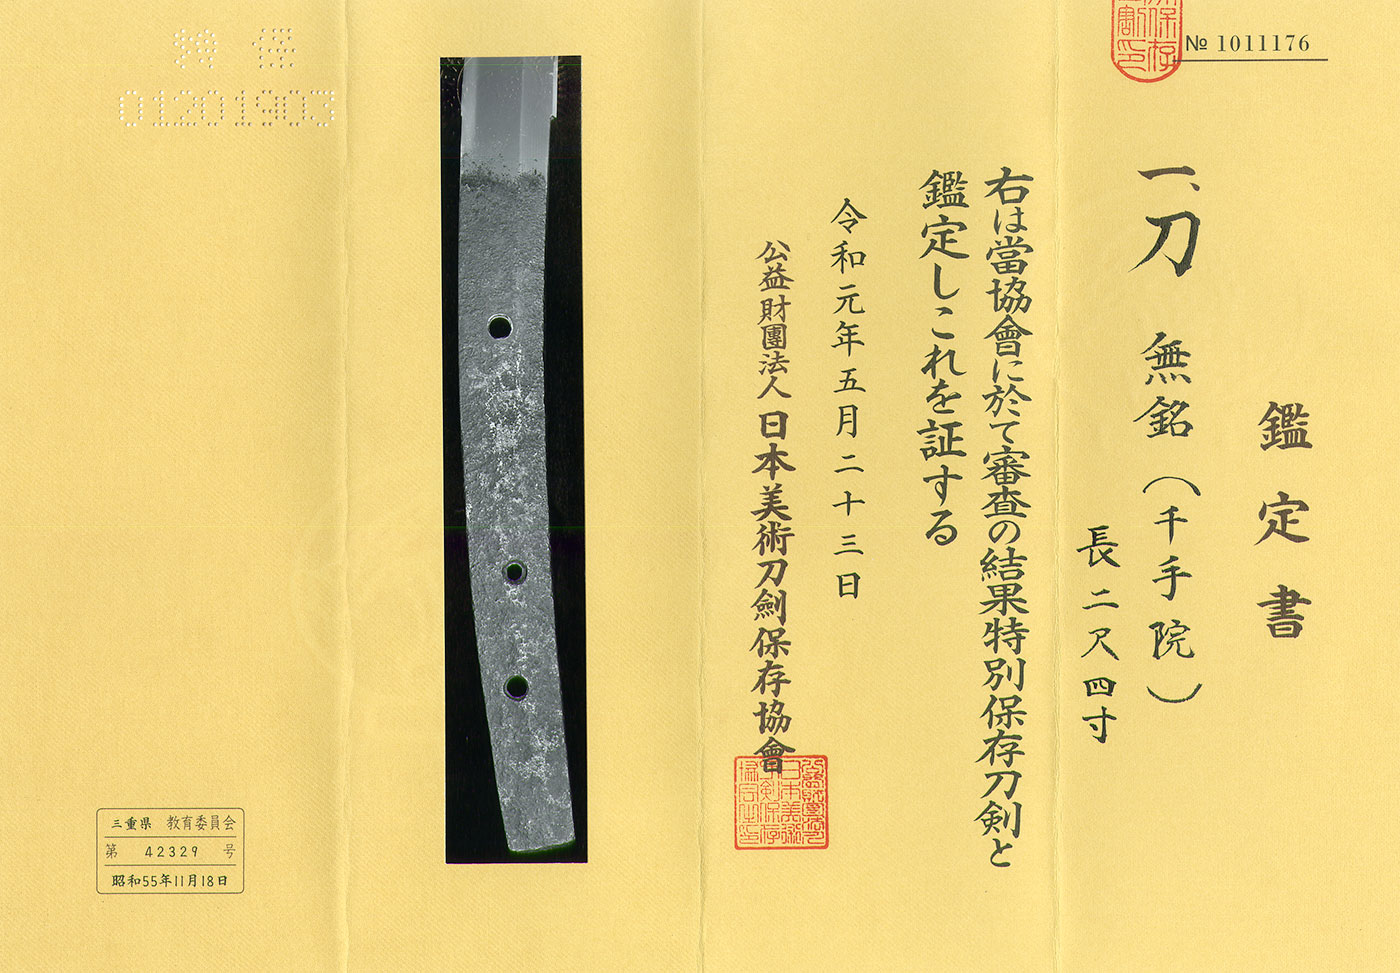 № 1011176
鑑定書
一、刀 無銘(千手院)
長二尺四寸
右は當協會に於て審査の結果特別保存刀剣と
鑑定しこれを証する
令和元年五月二十三日
公益財團法人日本美術刀劍保存協會
特保
01201903
三重県 教育委員会
第 42329 号
昭和55年11月18日